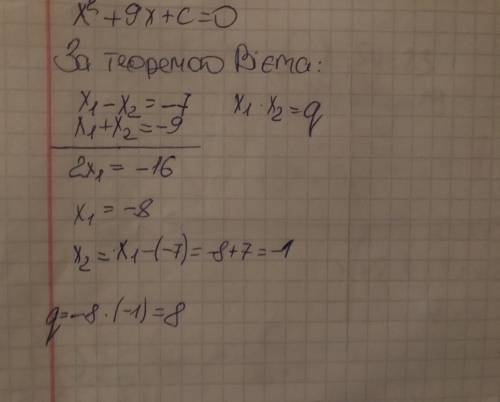 x² + 9x + c = 0
За теоремою Вієта:
x₁ - x₂ = -7 x₁ · x₂ = q
x₁ + x₂ = -9
2x₁ = -16
x₁ = -8
x₂ = x₁ - (-7) = -8 + 7 = -1
q = -8 · (-1) = 8